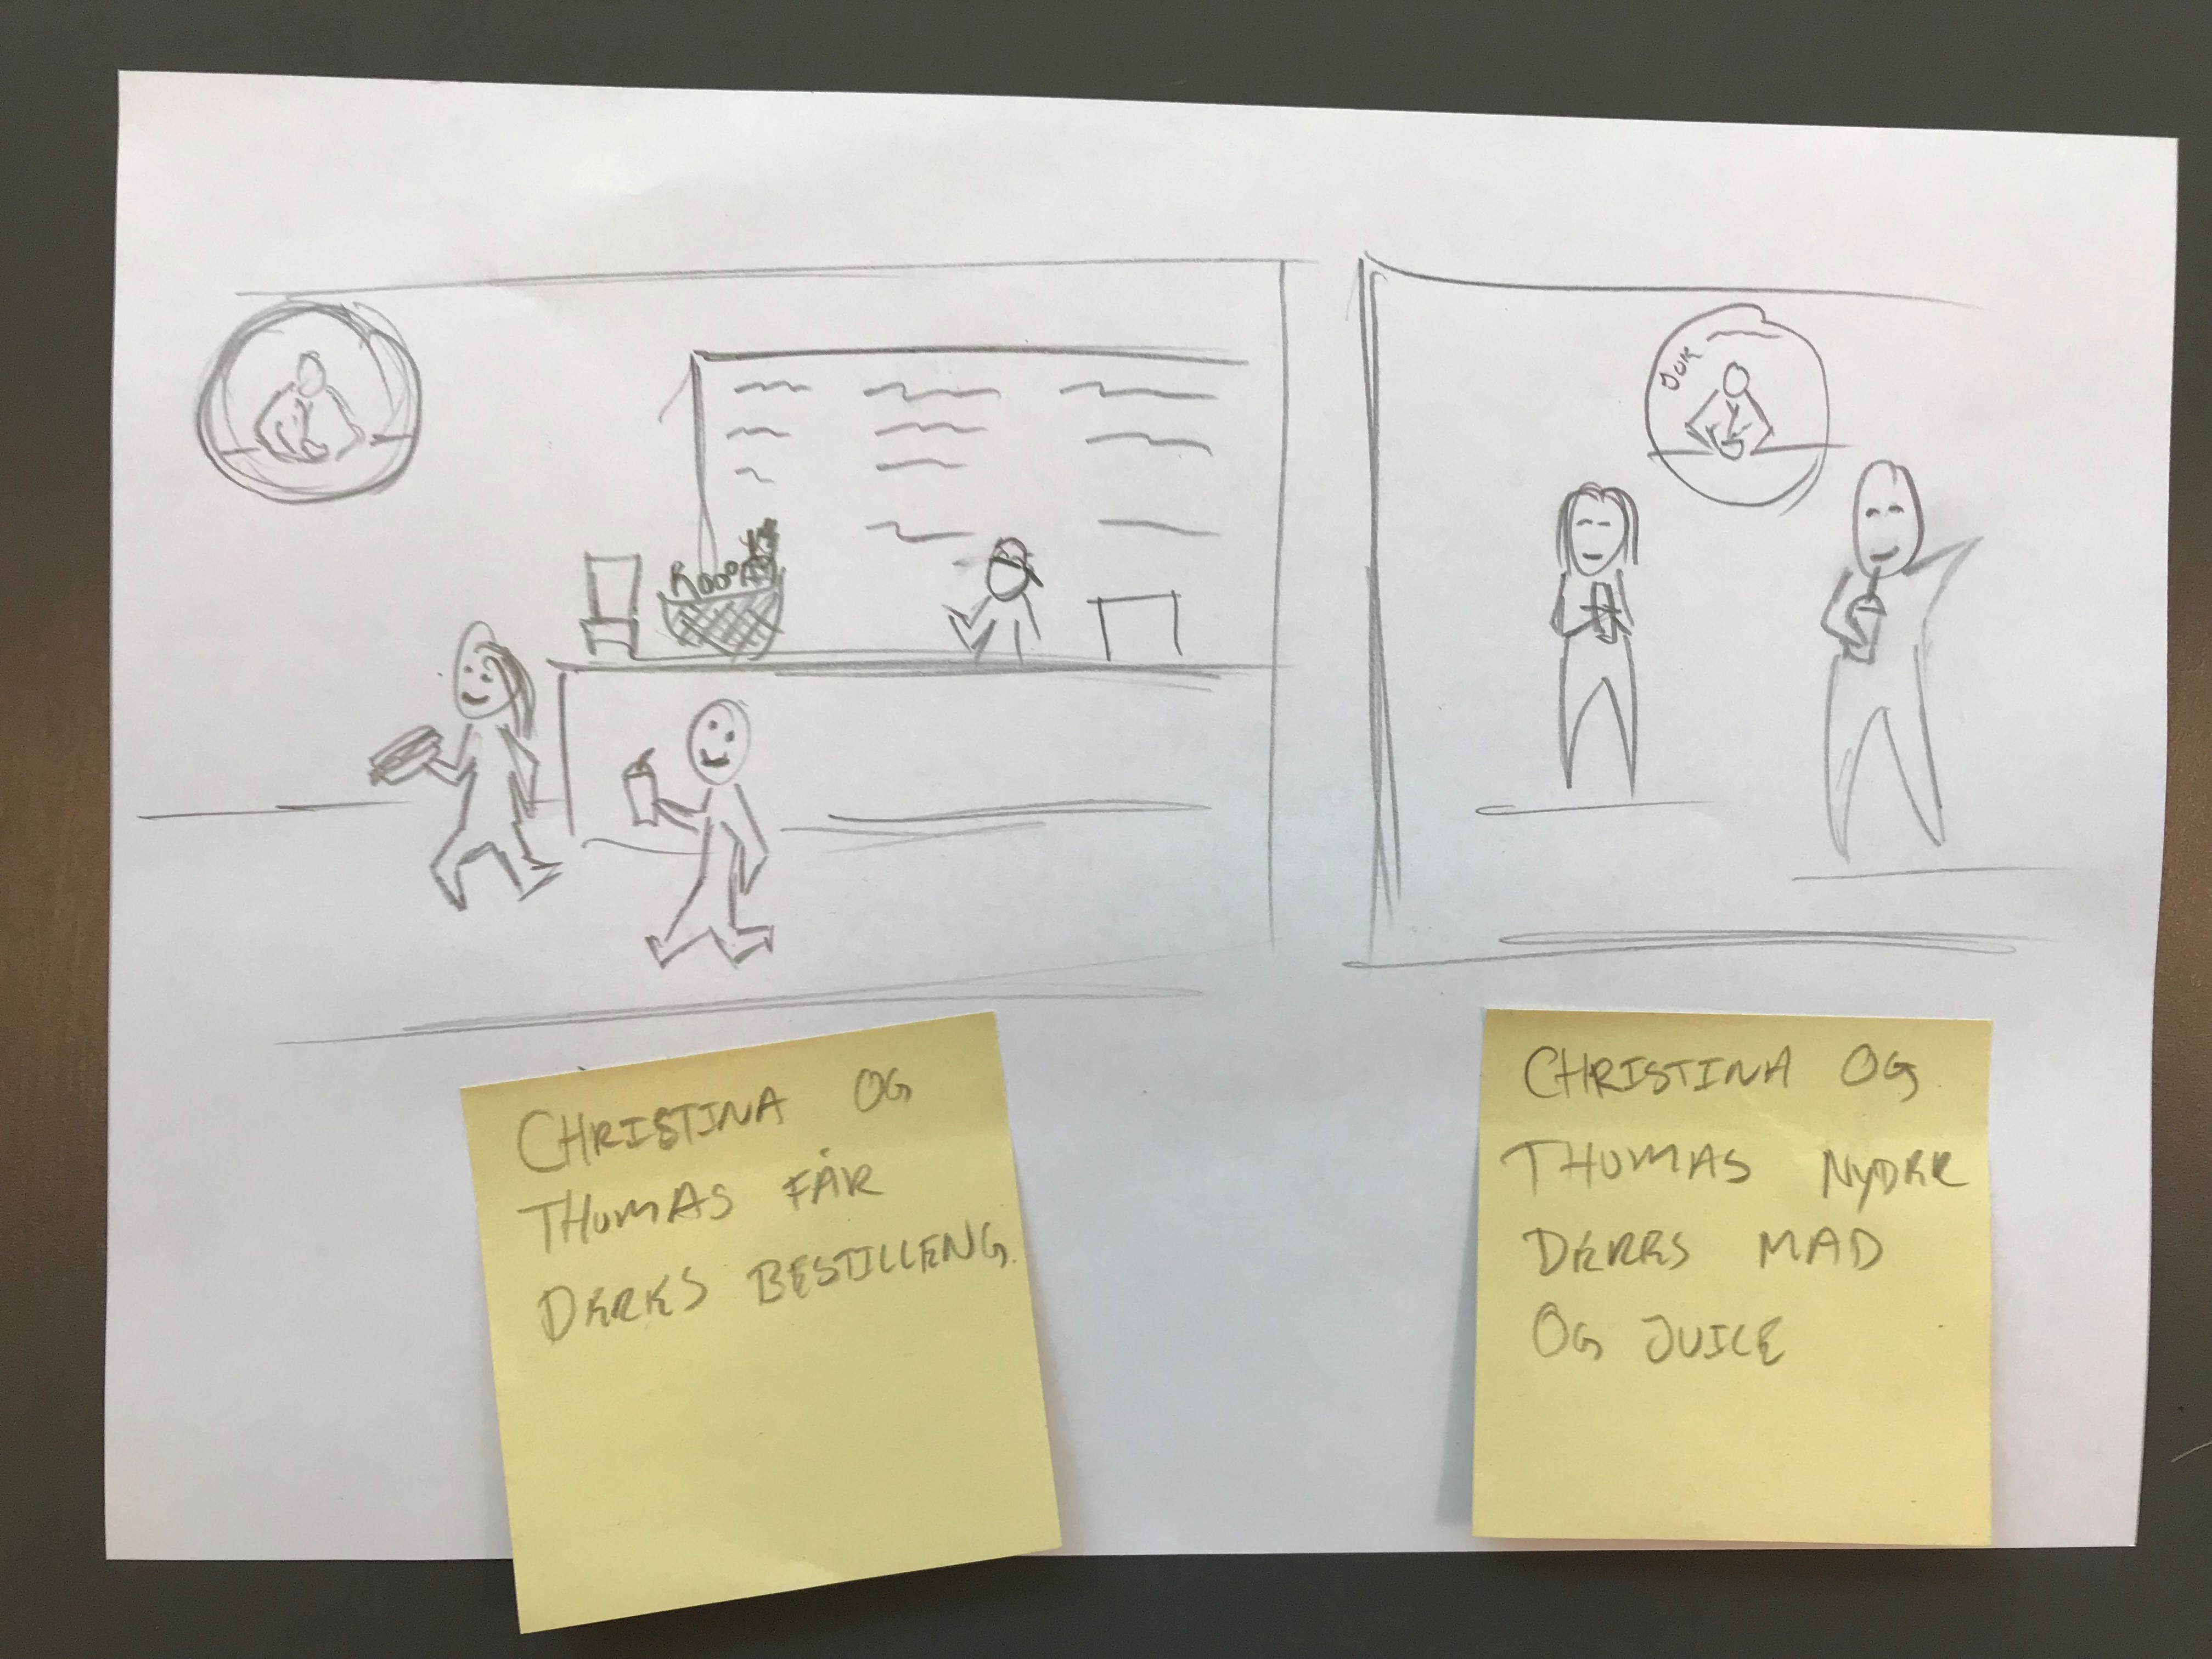 JUK
CHRISTINA OG
THOMAS FÅR
DERES BESTILLENG.
CHRISTINA OG
THOMAS NYDER
DERES MAD
OG JUICE